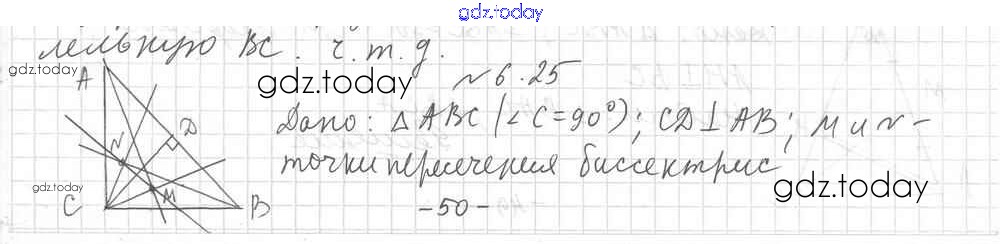 gdz.today
лельную BC. ч.т.д.
gdz.today
gdz.today
№6.25
A
N
D
M
C
B
Дано: △ABC (∠C=90°); CD⊥AB; M и N-
точки пересечения биссектрис
gdz.today
gdz.today
-50-